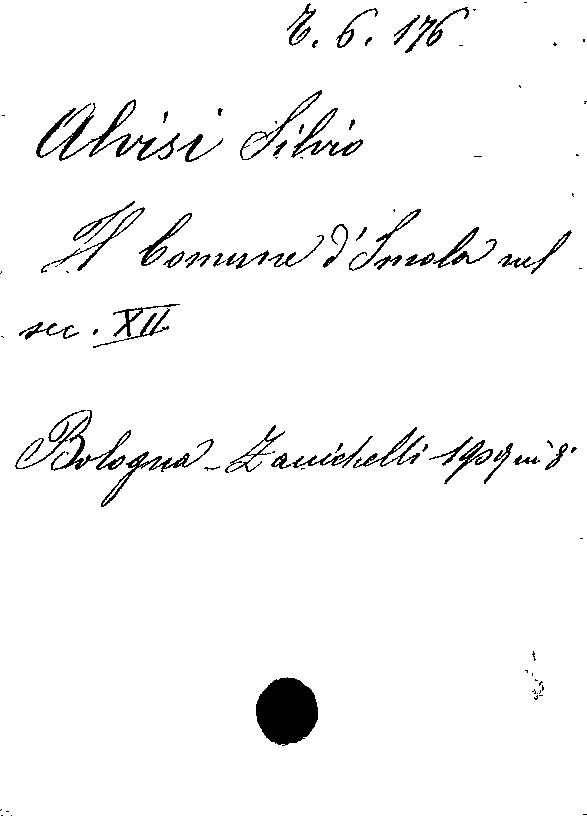 E. 6. 176
Alvisi Silvio
Il Comune d'Imola nel
sec. XII
Bologna - Zanichelli 1909 in 8°